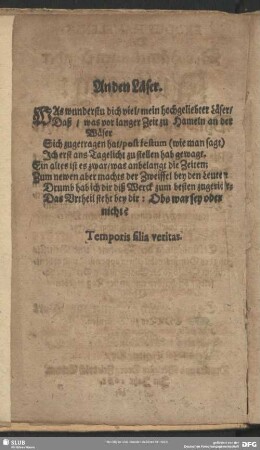 An den Läser.
WAs wunderstu dich viel/ mein hochgeliebter Läser/
Daß / was vor langer Zeit zu Hameln an der
Wäser
Sich zugetragen hat/ post festum (wie man sagt)
Ich erst ans Tagelicht zu stellen hab gewagt.
Ein altes ist es zwar/ was anbelangt die Zeiten:
Zum newen aber machts der Zweiffel bey den Leuten:
Drumb hab ich dir diß Werck zum besten zugericht:
Das Vrtheil steht bey dir: Obs war sey oder
nicht?
Temporis filia veritas.
SLUB
DFG